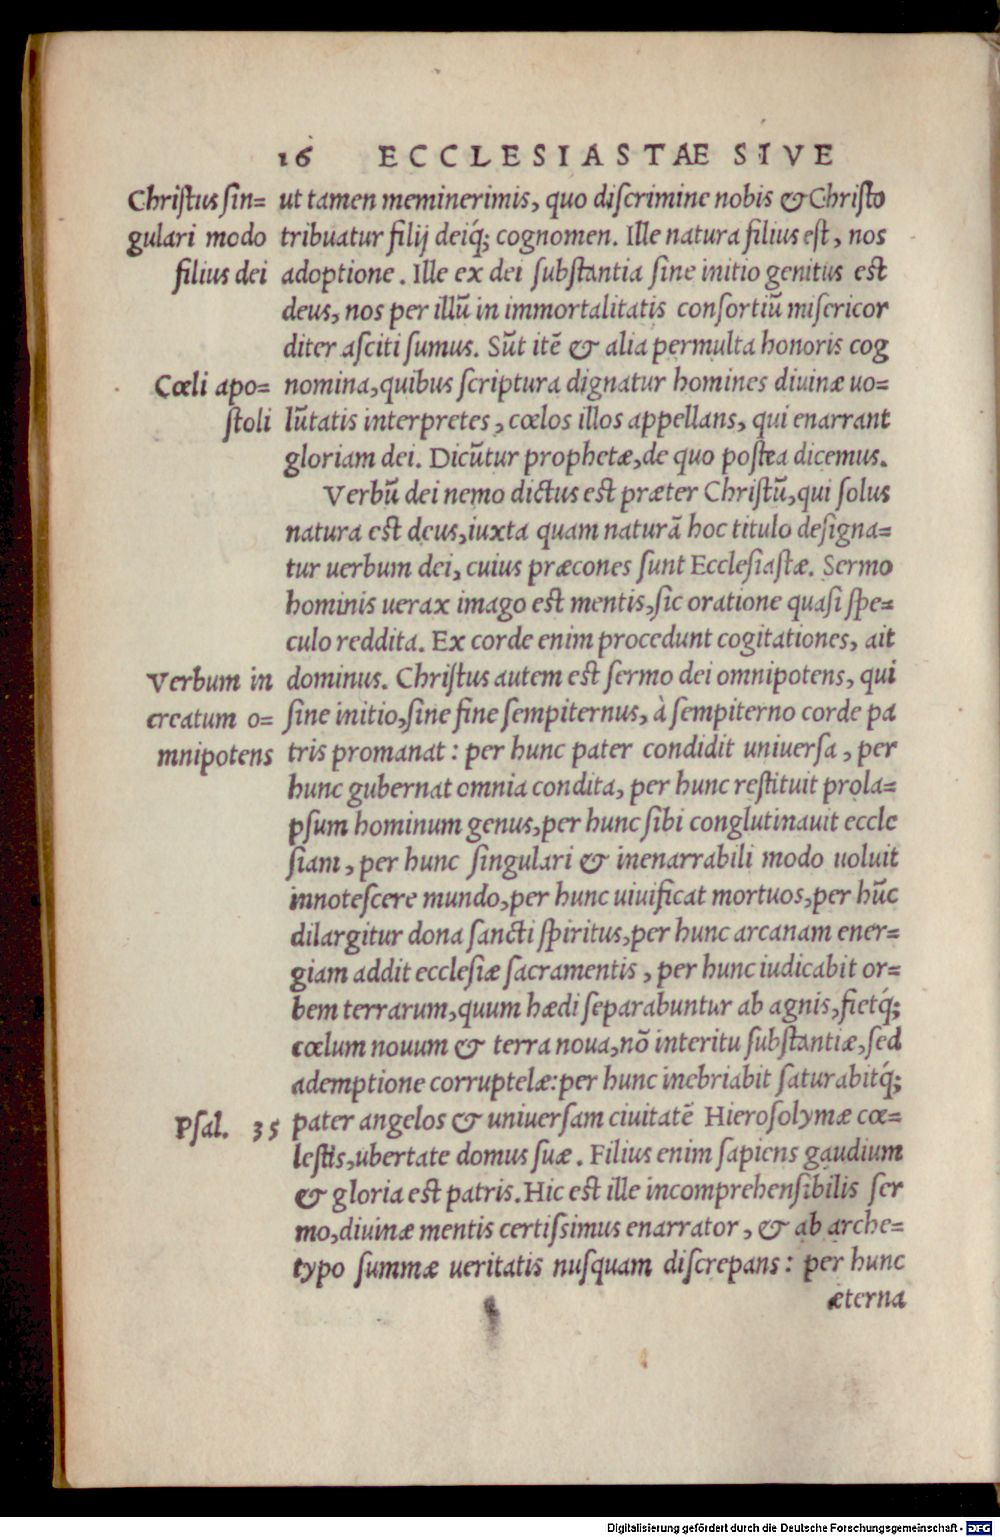 16 ECCLESIASTAE SIVE
Christus sin=
gulari modo
filius dei
ut tamen meminerimis, quo discrimine nobis & Christo
tribuatur filij deiq́; cognomen. Ille natura filius est, nos
adoptione. Ille ex dei substantia sine initio genitus est
deus, nos per illũ in immortalitatis consortiũ misericor
diter asciti sumus. Sũt itẽ & alia permulta honoris cog
Cœli apo=
stoli
nomina, quibus scriptura dignatur homines divinæ uo=
lũtatis interpretes, cœlos illos appellans, qui enarrant
gloriam dei. Dicũtur prophetæ, de quo postea dicemus.
Verbũ dei nemo dictus est præter Christũ, qui solus
natura est deus, iuxta quam naturã hoc titulo designa=
tur uerbum dei, cuius præcones sunt Ecclesiastæ. Sermo
hominis uerax imago est mentis, sic oratione quasi spe=
culo reddita. Ex corde enim procedunt cogitationes, ait
Verbum in
creatum o=
mnipotens
dominus. Christus autem est sermo dei omnipotens, qui
sine initio, sine fine sempiternus, à sempiterno corde pa
tris promanat: per hunc pater condidit uniuersa, per
hunc gubernat omnia condita, per hunc restituit prola=
psum hominum genus, per hunc sibi conglutinauit eccle
siam, per hunc singulari & inenarrabili modo uoluit
innotescere mundo, per hunc uiuificat mortuos, per hũc
dilargitur dona sancti spiritus, per hunc arcanam ener=
giam addit ecclesiæ sacramentis, per hunc iudicabit or=
bem terrarum, quum hædi separabuntur ab agnis, fietq́;
cœlum nouum & terra noua, nõ interitu substantiæ, sed
ademptione corruptelæ: per hunc inebriabit saturabitq́;
Psal. 35
pater angelos & uniuersam ciuitatẽ Hierosolymæ cœ=
lestis, ubertate domus suæ. Filius enim sapiens gaudium
& gloria est patris. Hic est ille incomprehensibilis ser
mo, diuinæ mentis certissimus enarrator, & ab arche=
typo summæ ueritatis nusquam discrepans: per hunc
æterna
Digitalisierung gefördert durch die Deutsche Forschungsgemeinschaft - DFG